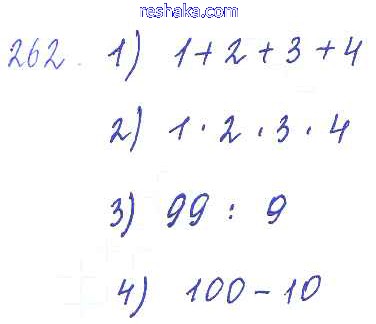 reshaka.com
262. 1) 1 + 2 + 3 + 4
2) 1 · 2 · 3 · 4
3) 99 : 9
4) 100 - 10